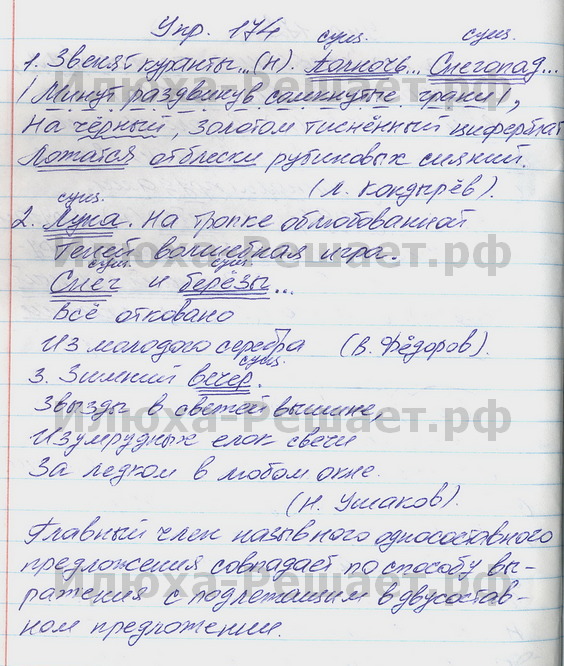 Упр. 174
сущ. сущ.
1. Звенят куранты...(Н). Полночь... Снегопад...
|Минут раздвинув сомкнутые грани|,
На чёрный, золотом тиснёный циферблат
Ложатся отблески рубиновых сияний.
(Л. Кондырёв).
сущ.
2. Луна. На тропке облюбованной
Теней волшебная игра.
сущ. сущ.
Снег и берёзы...
Всё отковано
Из молодого серебра (В. Фёдоров).
сущ.
3. Зимний вечер.
Звёзды в светлой вышине,
Изумрудных елок свечи
За ледком в любом окне.
(Н. Ушаков).
Главный член назывного односоставного
предложения совпадает по способу вы-
ражения с подлежащим в двусостав-
ном предложении.
Илюха-Решает.рф
Илюха-Решает.рф
Илюха-Решает.рф
Илюха-Решает.рф
Илюха-Решает.рф